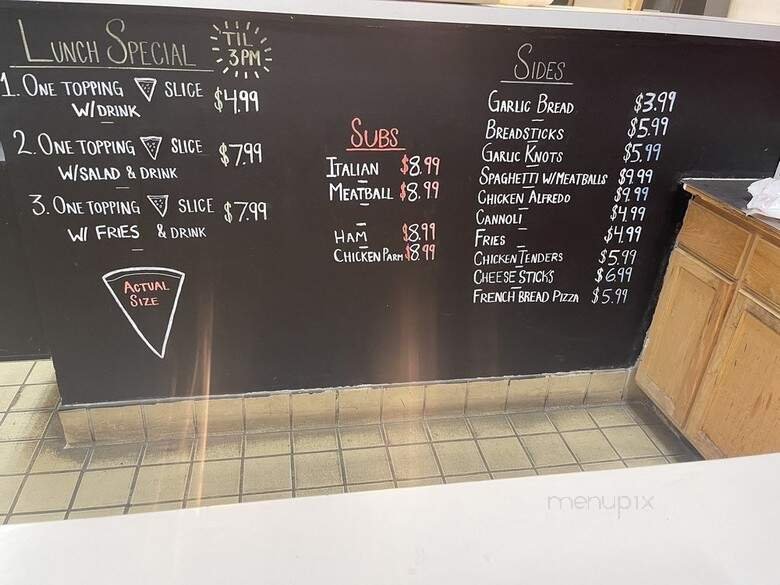 LUNCH SPECIAL
TIL
3PM
1. ONE TOPPING SLICE $4.99
W/DRINK
2. ONE TOPPING SLICE $7.99
W/SALAD & DRINK
3. ONE TOPPING SLICE $7.99
W/ FRIES & DRINK
ACTUAL
SIZE
SUBS
ITALIAN $8.99
MEATBALL $8.99
HAM $8.99
CHICKEN PARM $8.99
SIDES
GARLIC BREAD $3.99
BREADSTICKS $5.99
GARLIC KNOTS $5.99
SPAGHETTI W/MEATBALLS $9.99
CHICKEN ALFREDO $9.99
CANNOLI $4.99
FRIES $4.99
CHICKEN TENDERS $5.99
CHEESE STICKS $6.99
FRENCH BREAD PIZZA $5.99
menupix